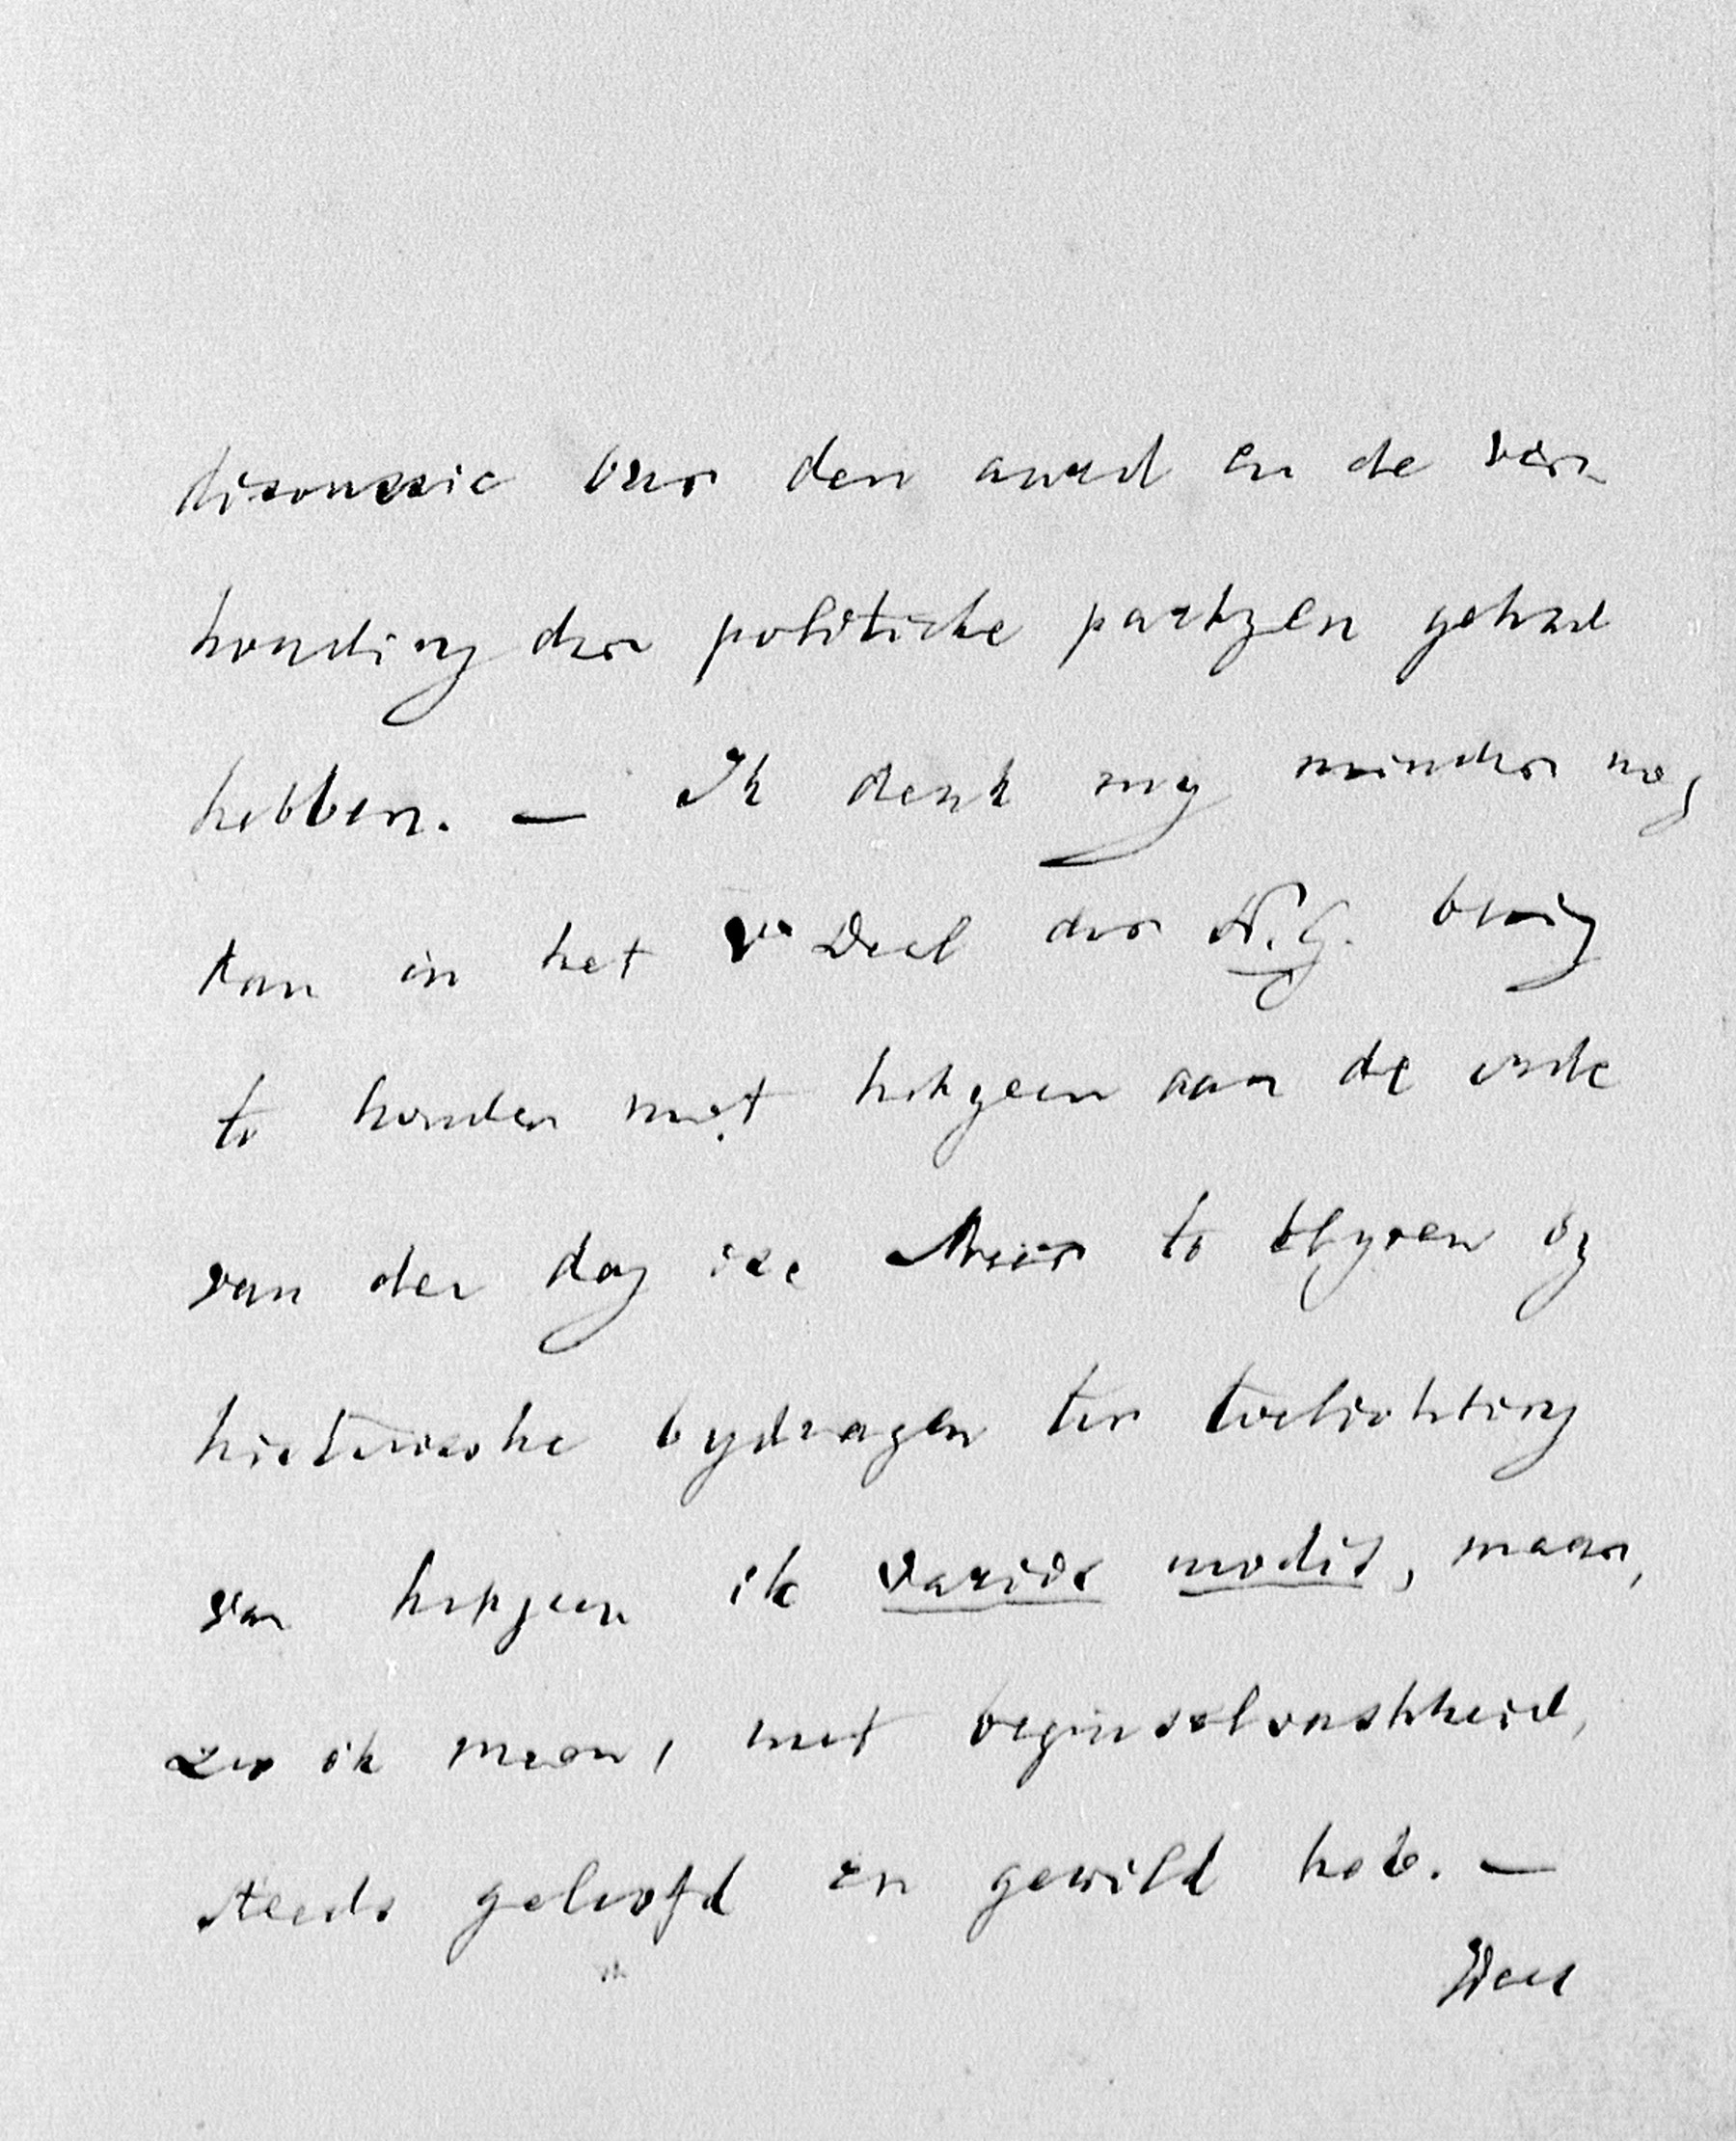 discussie over den aard en de ver-
houding der politieke partyen gehad
hebben. — Ik denk my minder nog
dan in het Ve Deel der N.G. bezig
te houden met hetgeen aan de orde
van den dag is; liever te blyven by
historische bydragen ter toelichting
van hetgeen ik variis modis, maar,
zoo ik meen, met beginselvastheid,
steeds geloofd en gewild heb. —